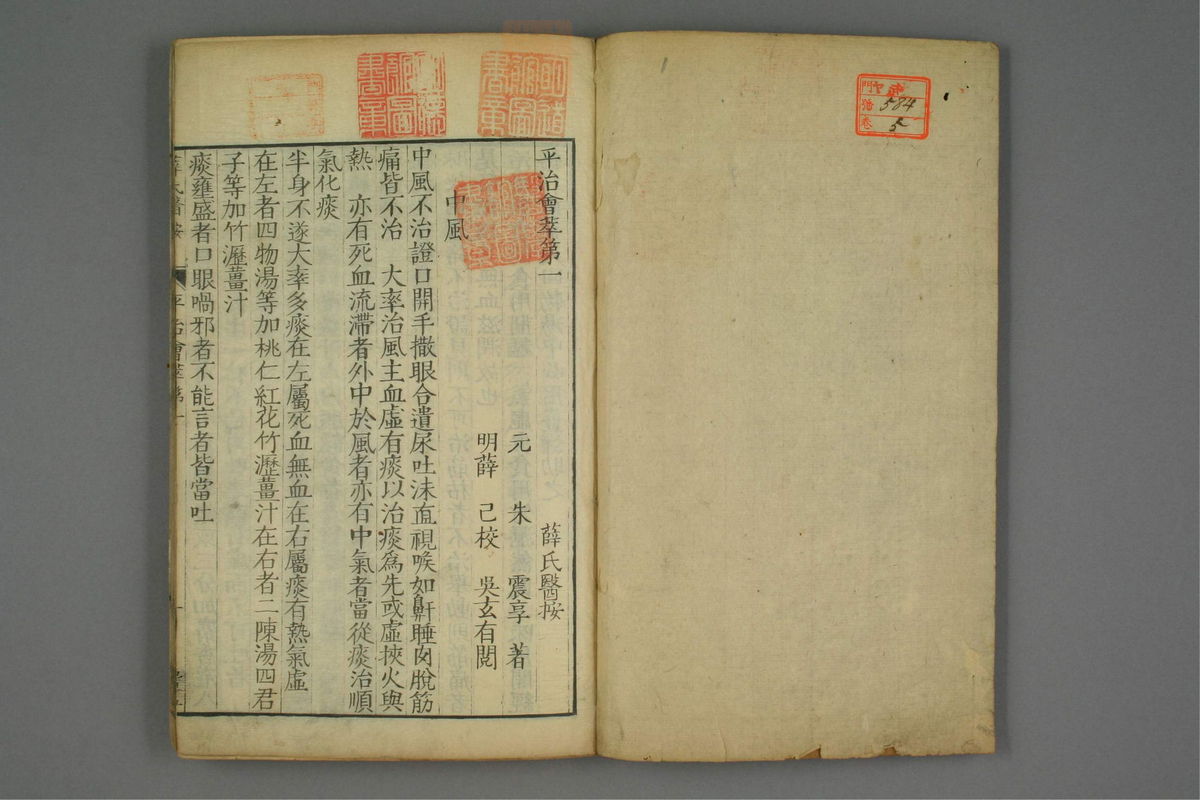 584
5
平治會萃第一
薛氏醫按
元 朱 震亨 著
明薛 己校 吳玄有閱
中風
中風不治證口開手撒眼合遺尿吐沫直視喉如鼾睡肉脫筋
痛皆不治 大率治風主血虛有痰以治痰爲先或虛挾火與
熱 亦有死血流滯者外中於風者亦有中氣者當從痰治順
氣化痰
半身不遂大率多痰在左屬死血無血在右屬痰有熱氣虛
在左者四物湯等加桃仁紅花竹瀝薑汁在右者二陳湯四君
子等加竹瀝薑汁
痰壅盛者口眼喎邪者不能言者皆當吐
薛氏醫按
平治會萃第一